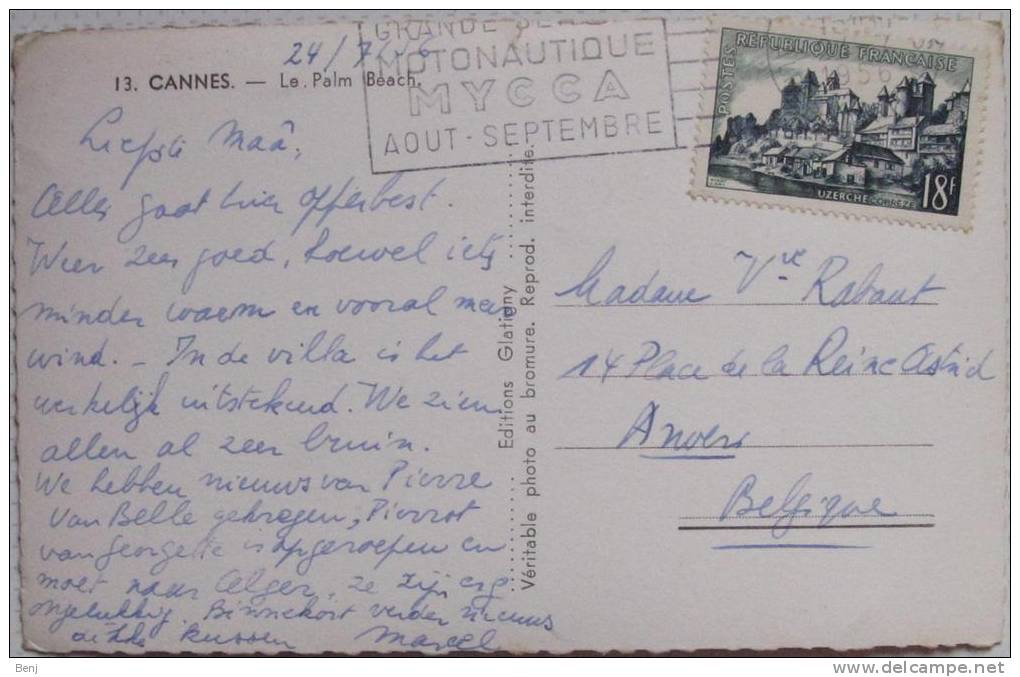 GRANDE
MOTONAUTIQUE
MYCCA
AOUT - SEPTEMBRE
1956
POSTES REPUBLIQUE FRANÇAISE
UZERCHE-CORREZE
18F
24/7/56
13. CANNES. — Le Palm Beach.
Liefste Maâ,
Alles gaat hier opperbest.
Weer zeer goed, hoewel iets
minder warm en vooral meer
wind. — In de villa is het
werkelijk uitstekend. We zien
allen al zeer bruin.
We hebben nieuws van Pierre
Van Belle gekregen, Pierrot
van Georgette is opgeroepen en
moet naar Alger, ze zijn erg
ongelukkig. Binnekort verder nieuws
dikke kussen Marcel
Editions Glatigny
Véritable photo au bromure. Reprod. interdite.
Madame Vve Rabaut
14 Place de la Reine Astrid
Anvers
Belgique
Benj
http://www.delcampe.net